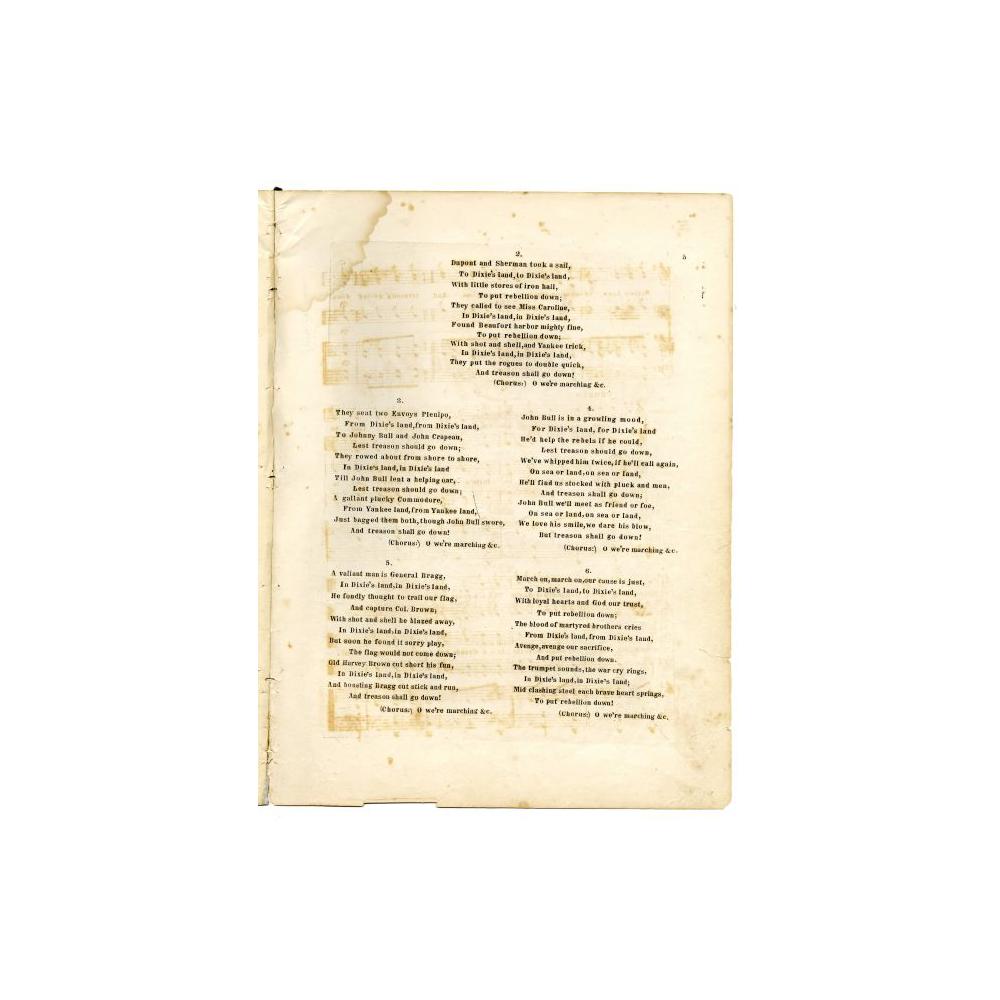 5
2.
Dupont and Sherman took a sail,
To Dixie's land, to Dixie's land,
With little stores of iron hail,
To put rebellion down;
They called to see Miss Caroline,
In Dixie's land, in Dixie's land,
Found Beaufort harbor mighty fine,
To put rebellion down;
With shot and shell, and Yankee trick,
In Dixie's land, in Dixie's land,
They put the rogues to double quick,
And treason shall go down!
(Chorus:) O we're marching &c.
3.
They sent two Envoys Plenipo,
From Dixie's land, from Dixie's land,
To Johnny Bull and John Crapeau,
Lest treason should go down;
They rowed about from shore to shore,
In Dixie's land, in Dixie's land
Till John Bull lent a helping oar,
Lest treason should go down;
A gallant plucky Commodore,
From Yankee land, from Yankee land,
Just bagged them both, though John Bull swore,
And treason shall go down!
(Chorus:) O we're marching &c.
4.
John Bull is in a growling mood,
For Dixie's land, for Dixie's land
He'd help the rebels if he could,
Lest treason should go down,
We've whipped him twice, if he'll call again,
On sea or land, on sea or land,
He'll find us stocked with pluck and men,
And treason shall go down;
John Bull we'll meet as friend or foe,
On sea or land, on sea or land,
We love his smile, we dare his blow,
But treason shall go down!
(Chorus:) O we're marching &c.
5.
A valiant man is General Bragg,
In Dixie's land, in Dixie's land,
He fondly thought to trail our flag,
And capture Col. Brown;
With shot and shell he blazed away,
In Dixie's land, in Dixie's land,
But soon he found it sorry play,
The flag would not come down;
Old Harvey Brown cut short his fun,
In Dixie's land, in Dixie's land,
And boasting Bragg cut stick and run,
And treason shall go down!
(Chorus:) O we're marching &c.
6.
March on, march on, our cause is just,
To Dixie's land, to Dixie's land,
With loyal hearts and God our trust,
To put rebellion down;
The blood of martyred brothers cries
From Dixie's land, from Dixie's land,
Avenge, avenge our sacrifice,
And put rebellion down.
The trumpet sounds, the war cry rings,
In Dixie's land, in Dixie's land;
Mid clashing steel each brave heart springs,
To put rebellion down!
(Chorus:) O we're marching &c.